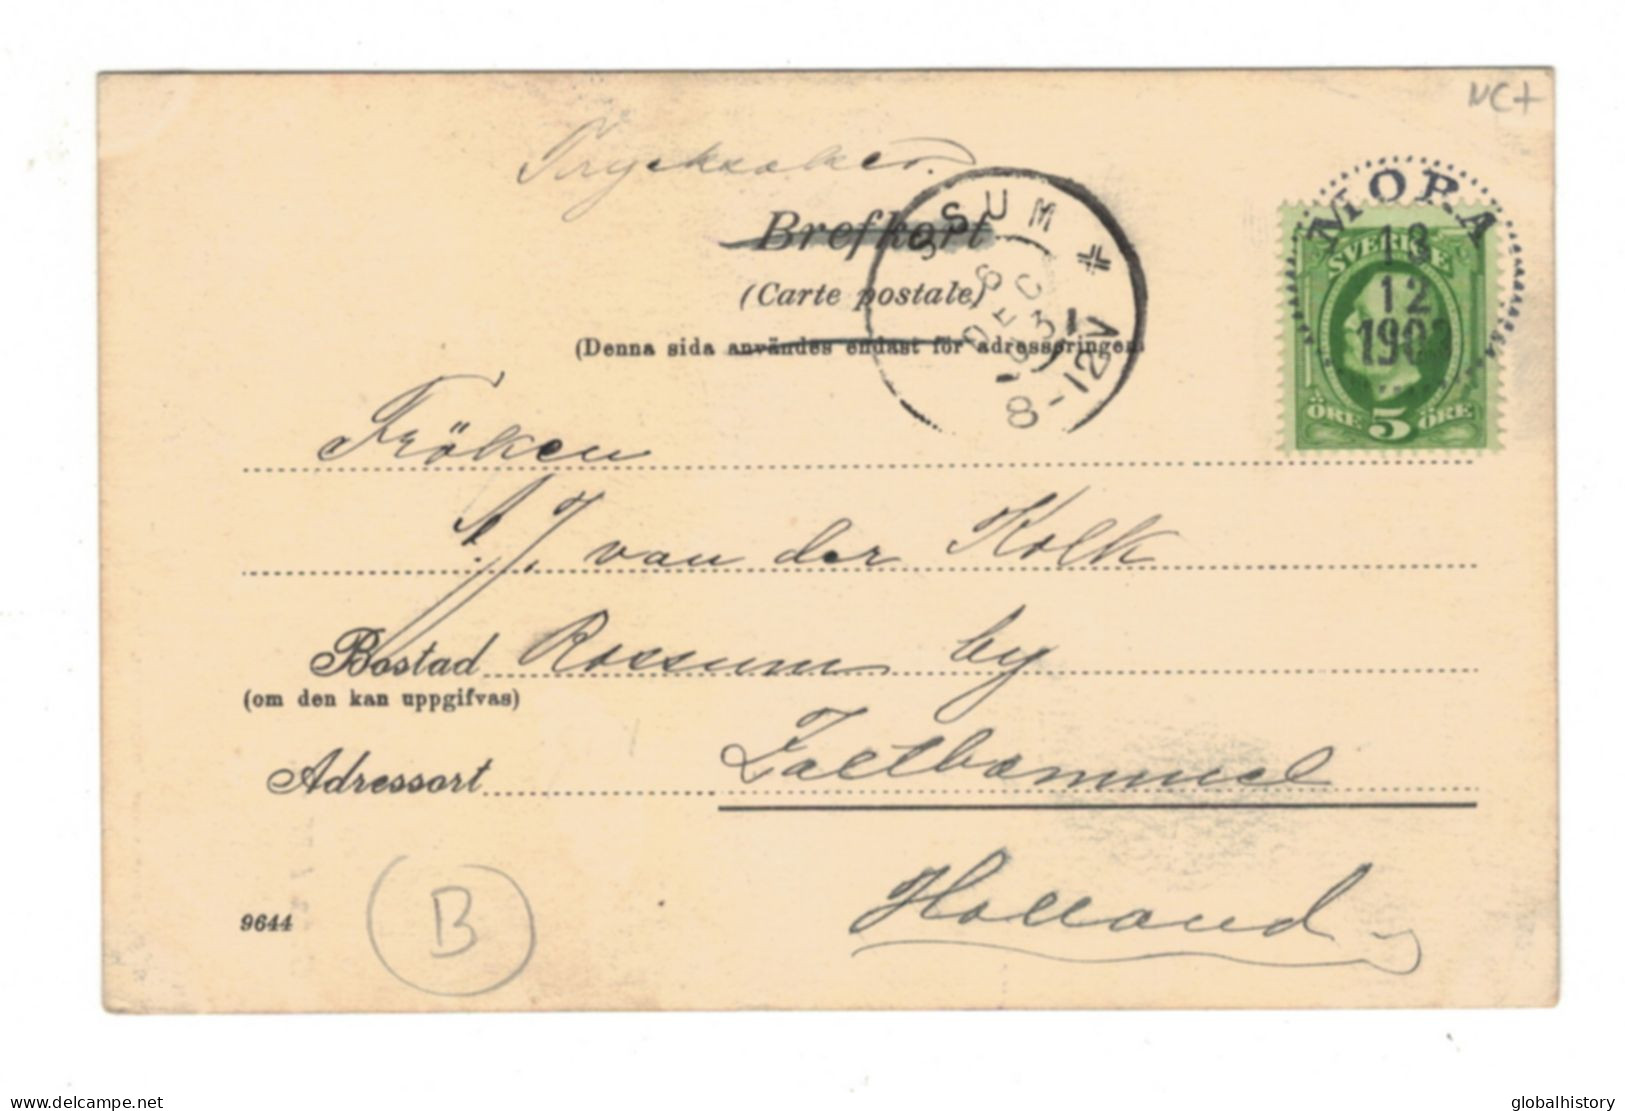 NC+
Trycksaker.
Brefkort
(Carte postale)
(Denna sida användes endast för adresseringen)
SSUM
6 DEC
8-12V
MORA
13
12
1903
SVERIGE
ÖRE 5 ÖRE
Fröken
A. J. van der Kolk
Bostad Rossum by
(om den kan uppgifvas)
Adressort Zaltbommel
Holland
9644
B
www.delcampe.net
globalhistory